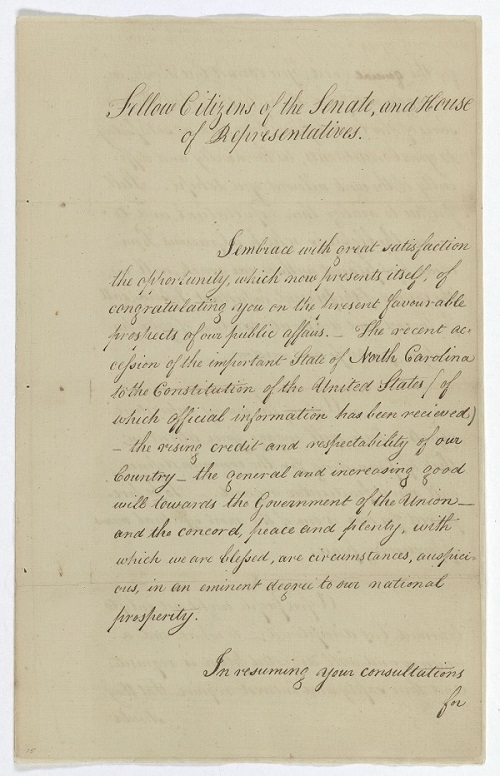 Fellow Citizens of the Senate, and House
of Representatives.
I embrace with great satisfaction
the opportunity, which now presents itself, of
congratulating you on the present favourable
prospects of our public affairs. – The recent ac-
cession of the important State of North Carolina
to the Constitution of the United States (of
which official information has been recieved)
– the rising credit and respectability of our
Country – the general and increasing good
will towards the Government of the Union –
and the concord, peace and plenty, with
which we are blessed, are circumstances, auspici-
ous, in an eminent degree to our national
prosperity.
In resuming your consultations
for